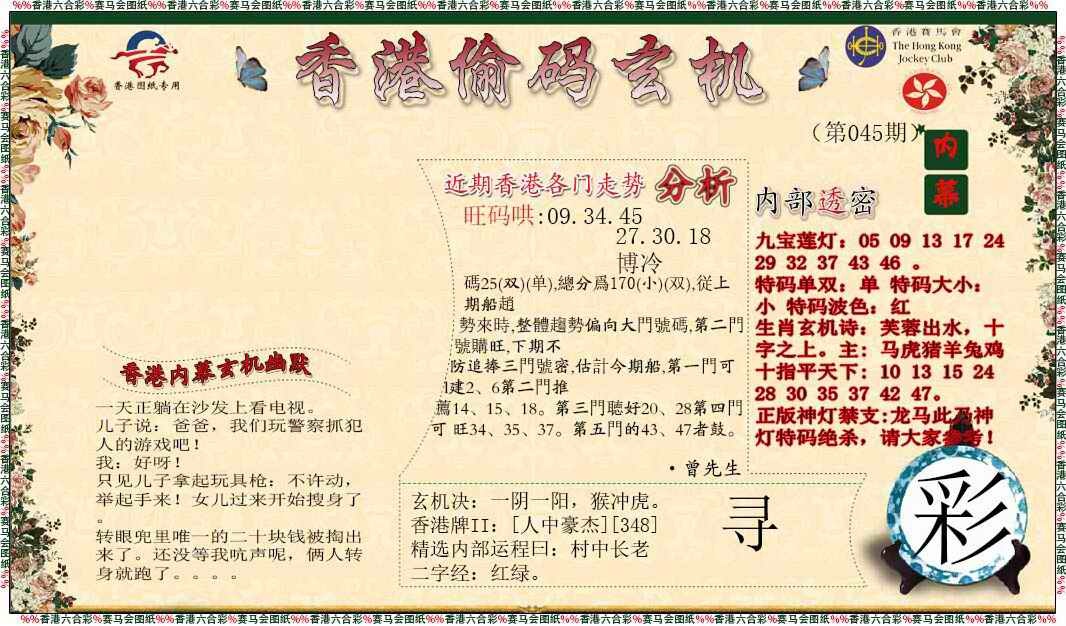 %%香港六合彩%赛马会图纸%%香港六合彩%赛马会图纸%%香港六合彩%赛马会图纸%%香港六合彩%赛马会图纸%%香港六合彩%赛马会图纸%%香港六合彩%赛马会图纸%%香港六合彩%%
香港图纸专用
香港偷码玄机
香港賽馬會
The Hong Kong
Jockey Club
（第045期）
内
幕
近期香港各门走势 分析
旺码哄:09.34.45
27.30.18
博冷
碼25(双)(单),總分爲170(小)(双),從上
期船趙
勢來時,整體趨勢偏向大門號碼,第二門
號購旺,下期不
防追捧三門號密,估計今期船,第一門可
建2、6第二門推
薦14、15、18。第三門聽好20、28第四門
可 旺34、35、37。第五門的43、47者鼓。
·曾先生
内部透密
九宝莲灯：05 09 13 17 24
29 32 37 43 46 。
特码单双：单 特码大小：
小 特码波色：红
生肖玄机诗：芙蓉出水，十
字之上。主：马虎猪羊兔鸡
十指平天下：10 13 15 24
28 30 35 37 42 47。
正版神灯禁支:龙马此乃神
灯特码绝杀，请大家参考！
香港内幕玄机幽默
一天正躺在沙发上看电视。
儿子说：爸爸，我们玩警察抓犯
人的游戏吧！
我：好呀！
只见儿子拿起玩具枪：不许动，
举起手来！女儿过来开始搜身了
。
转眼兜里唯一的二十块钱被掏出
来了。还没等我吭声呢，俩人转
身就跑了。。。。
玄机决：一阴一阳，猴冲虎。
香港牌II：[人中豪杰][348]
精选内部运程曰：村中长老
二字经：红绿。
寻
彩
%%香港六合彩%赛马会图纸%%香港六合彩%赛马会图纸%%香港六合彩%赛马会图纸%%香港六合彩%赛马会图纸%%香港六合彩%赛马会图纸%%香港六合彩%赛马会图纸%%香港六合彩%%